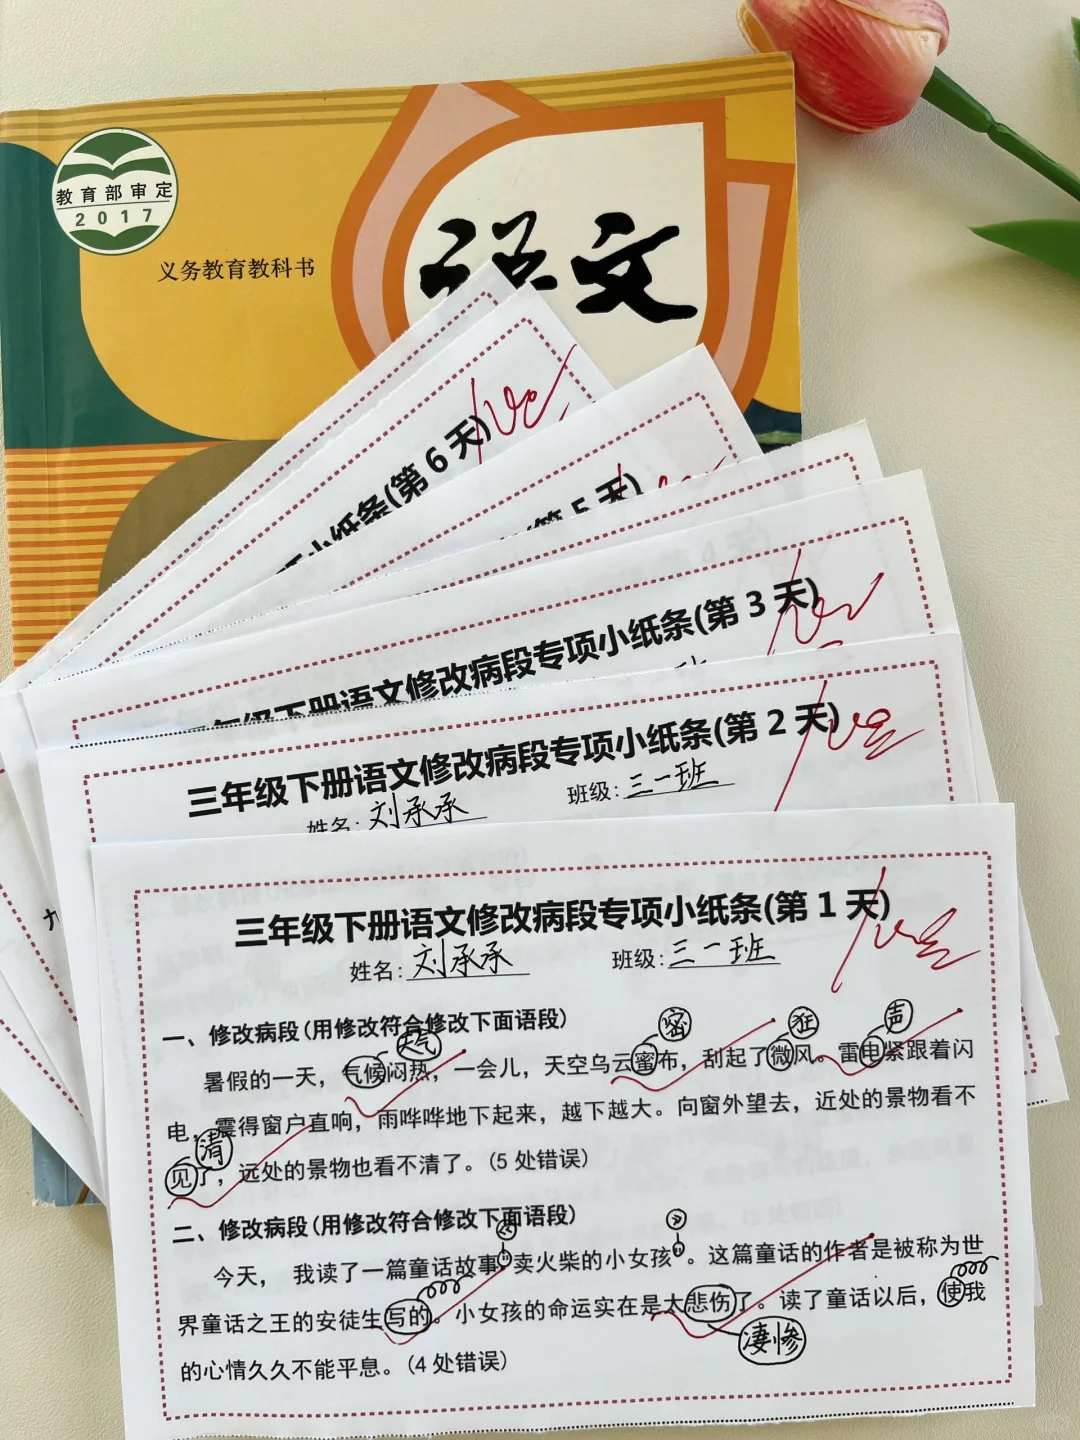 教育部审定
2017
义务教育教科书
语文
小纸条(第 6 天)
第 5 天)
三年级下册语文修改病段专项小纸条(第 3 天)
三年级下册语文修改病段专项小纸条(第 2 天)
姓名: 刘承承 班级: 三一班
三年级下册语文修改病段专项小纸条(第 1 天)
姓名: 刘承承 班级: 三一班
一、修改病段(用修改符合修改下面语段)
天气 密 狂 声
暑假的一天，气候闷热，一会儿，天空乌云蜜布，刮起了微风。雷电紧跟着闪
电，震得窗户直响，雨哗哗地下起来，越下越大。向窗外望去，近处的景物看不
清
见了，远处的景物也看不清了。(5 处错误)
二、修改病段(用修改符合修改下面语段)
《 》
今天， 我读了一篇童话故事，卖火柴的小女孩。这篇童话的作者是被称为世
界童话之王的安徒生写的。小女孩的命运实在是太悲伤了。读了童话以后，使我
凄惨
的心情久久不能平息。(4 处错误)